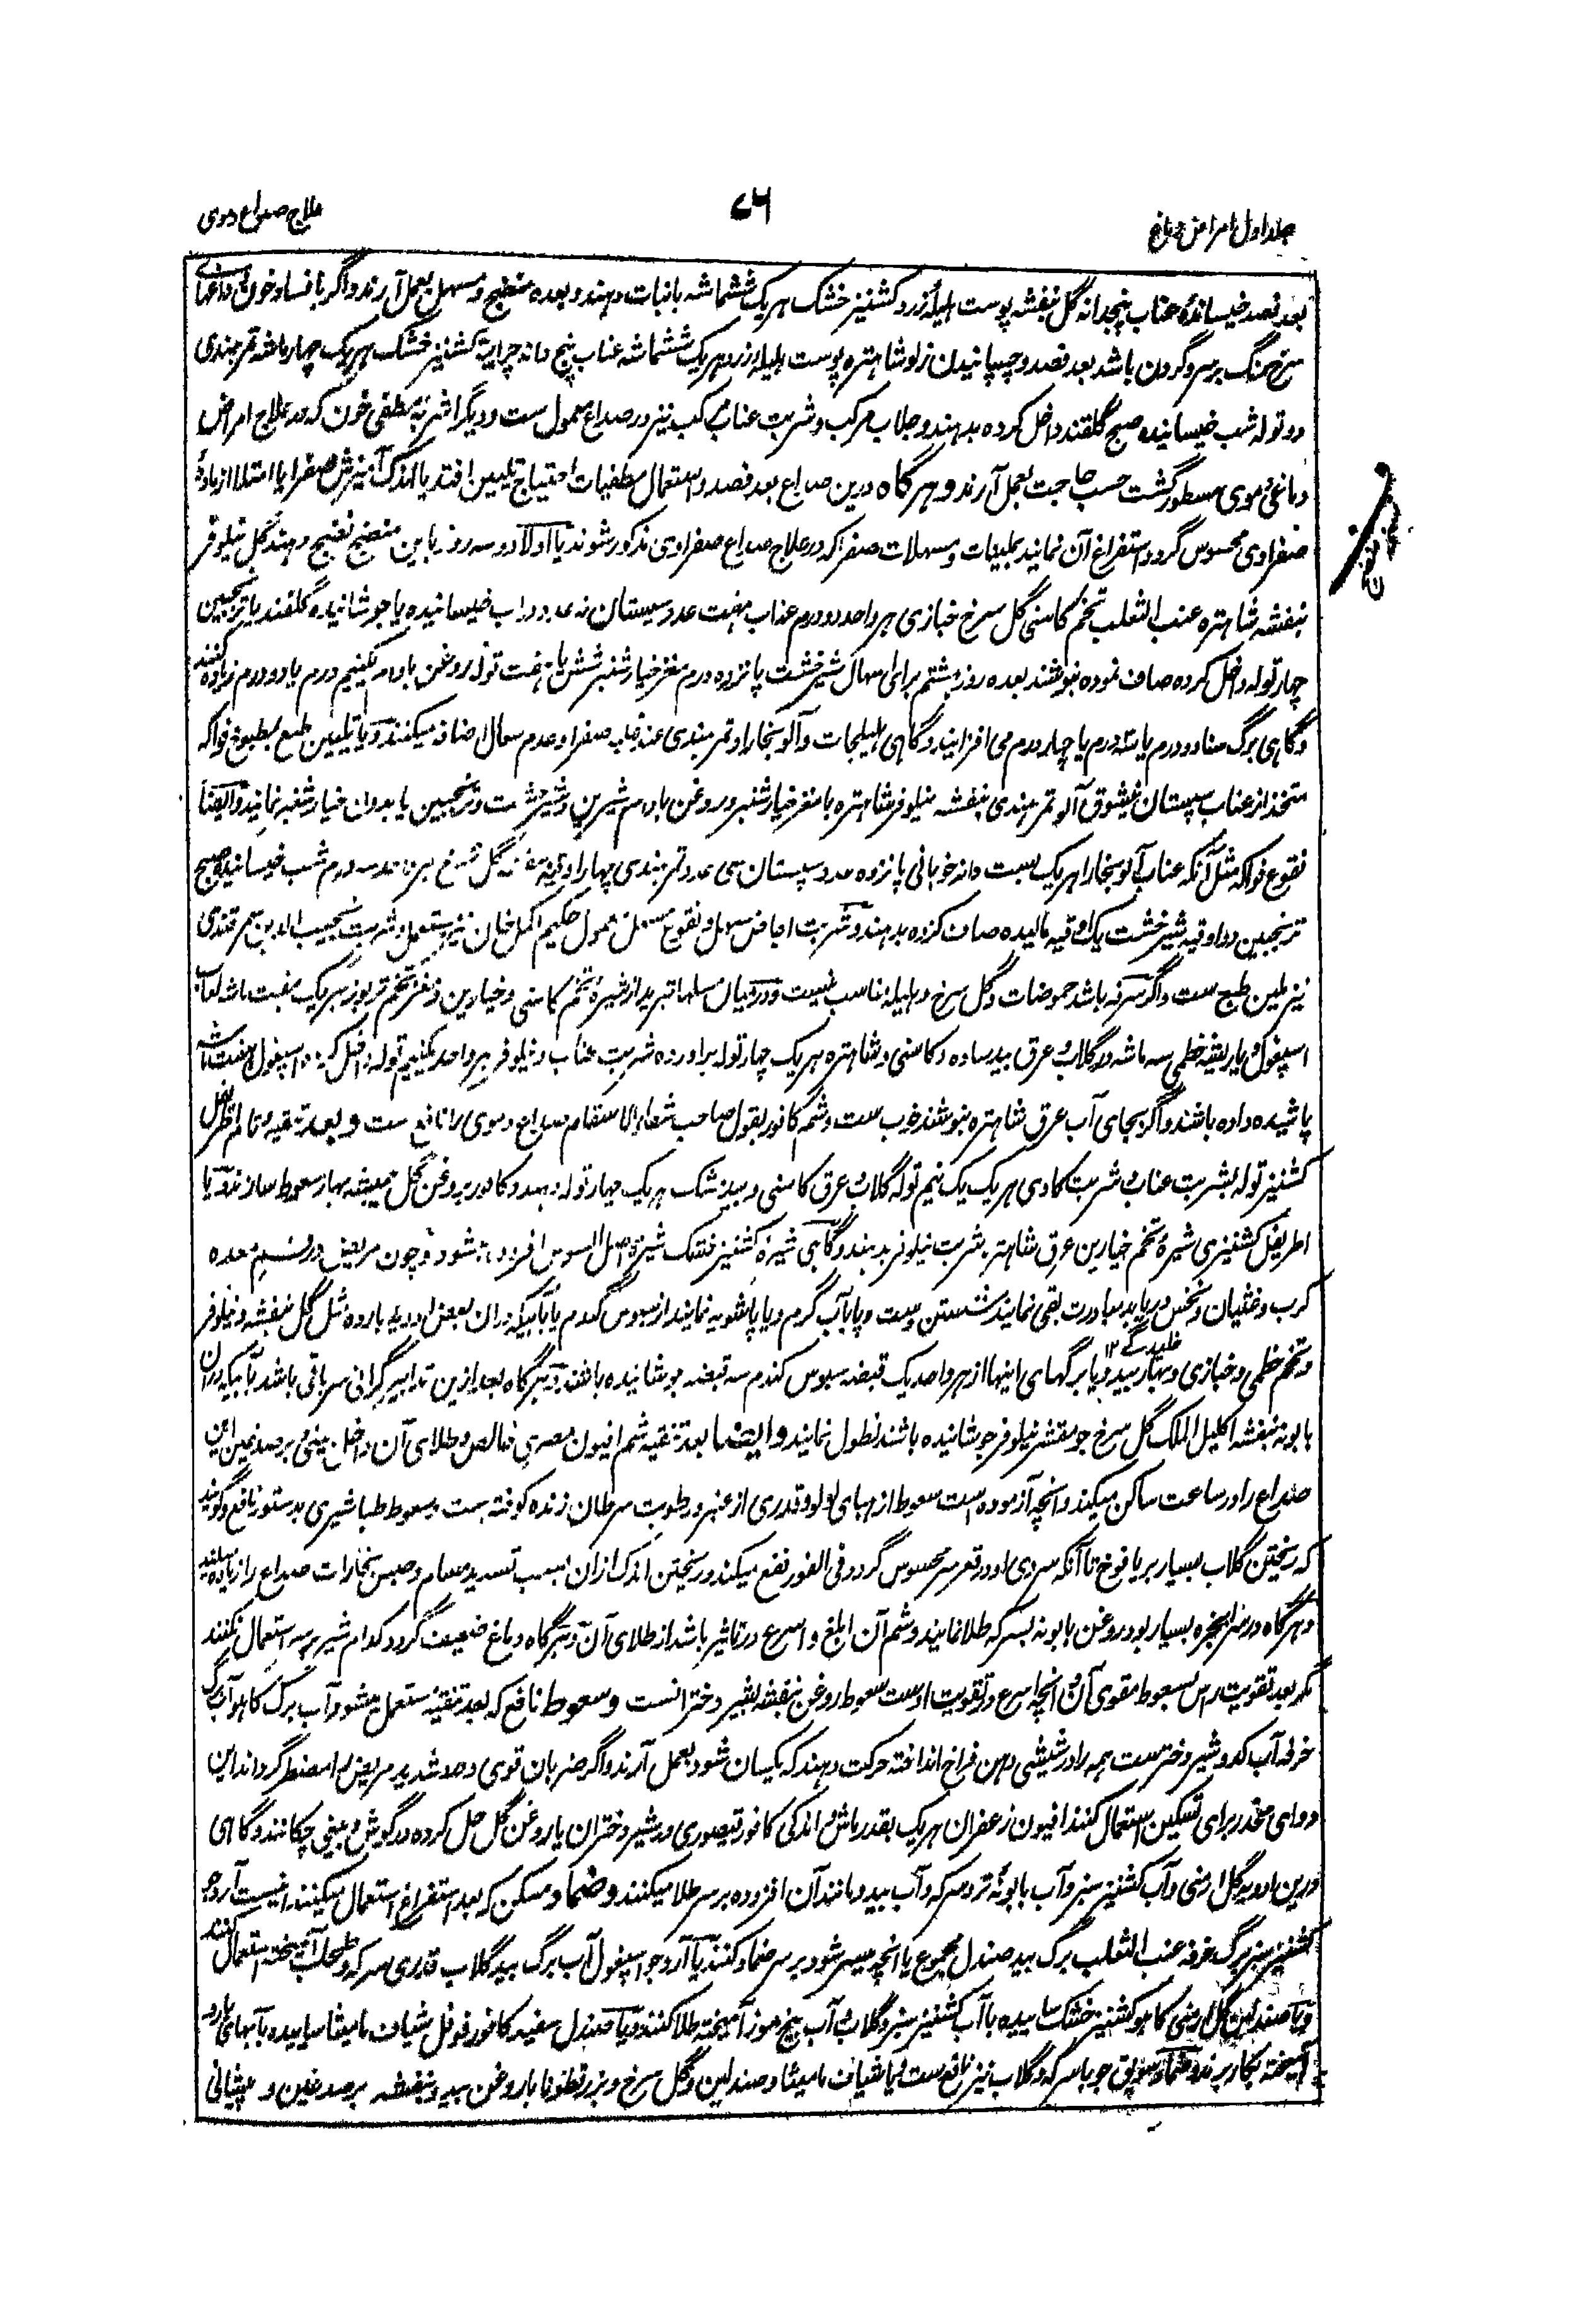 جلد اول امراض دماغ
۷۶
علاج صداع دموی
بعد فصد خیساندهٔ عناب پنجدانه گل بنفشه پوست هلیله زرد کشنیز خشک هر یک ششماشه با نبات دهند و بعده منضج و مسهل بعمل آرند و اگر با فساد خون
سرخ رنگ بر سر و گردن باشد بعد فصد و چسپانیدن زلو شاهتره پوست هلیله زرد هر یک ششماشه عناب پنج دانه چرایته کشنیز خشک هر یک چهار ماشه تمر هندی
دو توله شب خیسانیده صبح گلقند داخل کرده بدهند و جلاب مرکب و شربت عناب مرکب نیز در صداع معمول ست و دیگر اشربه مطفی خون که در علاج امراض
دماغی دموی مسطور گشت حسب حاجت بعمل آرند و هر گاه درین صداع بعد فصد و استعمال مطفیات احتیاج تلیین افتد یا اندک آمیزش صفرا یا امتلا از مادهٔ
صفراوی محسوس گردد استفراغ آن نمایند بملینات و مسهلات صفرا که در علاج صداع صفراوی مذکور شوند یا اولا دو سه روز باین منضج نضج دهند گل نیلوفر
بنفشه شاهتره عنب الثعلب تخم کاسنی گل سرخ خبازی هر واحد دو درم عناب هفت عدد سپستان نه عدد در آب خیسانیده یا جوشانیده گلقند یا ترنجبین
چهار توله داخل کرده صاف نموده بنوشند بعده روز هشتم برای اسهال شیرخشت پانزده درم مغز خیارشنبر شش یا هفت توله روغن بادام یکنیم درم یا دو درم زیاده کنند
و گاهی برگ سنا دو درم یا سه درم یا چهار درم می افزایند و گاهی هلیلجات و آلو بخارا و تمر هندی عند غلبه صفرا و عدم سعال اضافه میکنند و یا تلیین طبع بمطبوخ فواکه
متخذ از عناب سپستان آلو تمر هندی بنفشه نیلوفر شاهتره با مغز خیارشنبر و روغن بادام شیرین و شیرخشت و ترنجبین یا بدون خیارشنبر نمایند و ایضا
نقوع فواکه مثل آنکه عناب آلو بخارا هر یک بست دانه خوبانی پانزده عدد سپستان سی عدد تمر هندی چهار اوقیه بنفشه گل سرخ هر واحد سه درم شب خیسانیده صبح
ترنجبین دو اوقیه شیرخشت یک اوقیه مالیده صاف کرده بدهند و شربت اجاص مسهل و نقوع مسهل معمول حکیم اکمل خان نیز مستعمل و شربت نجیب الدین سمرقندی
نیز ملین طبع ست و اگر سرفه باشد حموضات و گل سرخ و هلیله مناسب نیست و در میان مسهلها تبرید از شیرهٔ تخم کاسنی و خیارین و مغز تخم تربوز هر یک هفت ماشه لعاب
اسپغول یا ریشه خطمی سه ماشه در گلاب و عرق بید ساده و کاسنی و شاهتره هر یک چهار توله برآورده شربت عناب و نیلوفر هر واحد یکنیم توله داخل کرده اسپغول هفت ماشه
پاشیده داده باشند و اگر بجای آب عرق شاهتره بنوشند خوب ست و شم کافور بقول صاحب شفاء الاسقام صداع دموی را نافع ست و بعد تنقیه تام اطریفل
کشنیز توله بشربت عناب و شربت کادی هر یک یک نیم توله گلاب و عرق کاسنی و بید مشک هر یک چهار توله دهند و کافور بروغن گل همیشه بهار سعوط سازند و یا
اطریفل کشنیزی شیرهٔ تخم خیارین عرق شاهتره شربت نیلوفر بدهند و گاهی شیرهٔ کشنیز خشک شیرهٔ اصل السوس افزوده شود و چون مریض در فم معده
کرب و غثیان و نخس دریابد مبادرت بقی نمایند شستن دست و پا بآب گرم و یا پاشویه نمایند از سبوس گندم یا بآبیکه دران بعض ادویه بارده مثل گل بنفشه و نیلوفر
خلیدگی ۱۲
و تخم خطمی و خبازی و بهار بید و یا برگهای اینها از هر واحد یک قبضه سبوس گندم سه قبضه جوشانیده باشند و هرگاه بعد ازین تدابیر گرانی سر باقی باشد بآبیکه دران
بابونه بنفشه اکلیل الملک گل سرخ جو مقشر نیلوفر جوشانیده باشند نطول نمایند و ایضا بعد تنقیه شم افیون مصری خالص و طلای آن داخل بینی و بر صدغین این
صداع را در ساعت ساکن میکند و آنچه آزموده است سعوط از لولو و قدری از عنبر و رطوبت سرطان زنده کوفته است و سعوط طباشیری بدستور نافع و گویند
که ریختن گلاب بسیار بر یافوخ تا آنکه سردی او در قعر سر محسوس گردد فی الفور نفع میکند و ریختن اندک ازان بسبب تسدید مسام و حبس بخارات صداع را زیاده میکند
و هرگاه در سر ابخره بسیار بود روغن بابونه بسرکه طلا نمایند و شم آن ابلغ و اسرع در تاثیر باشد از طلای آن و هرگاه دماغ ضعیف گردد کدام شیر بر سر استعمال نکنند
مگر بعد تقویت راس بسعوط مقوی آن و آنچه اسرع در تقویت اوست سعوط روغن بنفشه بشیر دخترانست و سعوط نافع که بعد تنقیه مستعمل میشود آب برگ کاهو آب برگ
خرفه آب کدو شیر دخترست همه را در شیشی دهن فراخ انداخته حرکت دهند که یکسان شود بعمل آرند و اگر ضربان قوی و درد شدید مریض را مضطر گرداند این
دوای مخدر برای تسکین استعمال کنند افیون زعفران هر یک بقدر ماش و اندکی کافور قیصوری در شیر دختران یا روغن گل حل کرده در گوش و بینی چکانند و گاهی
درین ادویه گل ارمنی و آب کشنیز سبز و آب بابونه تر و سرکه و آب بید و مانند آن افزوده بر سر طلا میکنند و ضماد مسکن که بعد استفراغ استعمال میکنند اینست آرد جو
کشنیز سبز برگ خرفه عنب الثعلب برگ بید صندل مجموع یا آنچه میسر شود بر سر ضماد کنند یا آرد جو اسپغول آب برگ بید گلاب قدری سرکه و طحلب آمیخته استعمال کنند
و یا صندلین گل ارمنی کاهو کشنیز خشک ساییده با آب کشنیز سبز و گلاب و آب بیخ موز آمیخته طلا کنند و یا صندل سفید کافور فوفل شیاف مامیثا ساییده بآبهای بارده
آمیخته بکار برند و ضماد سویق جو با سرکه و گلاب نیز نافع ست و یا شیاف مامیثا و صندلین و گل سرخ و بزرقطونا با روغن بید و بنفشه بر صدغین و پیشانی